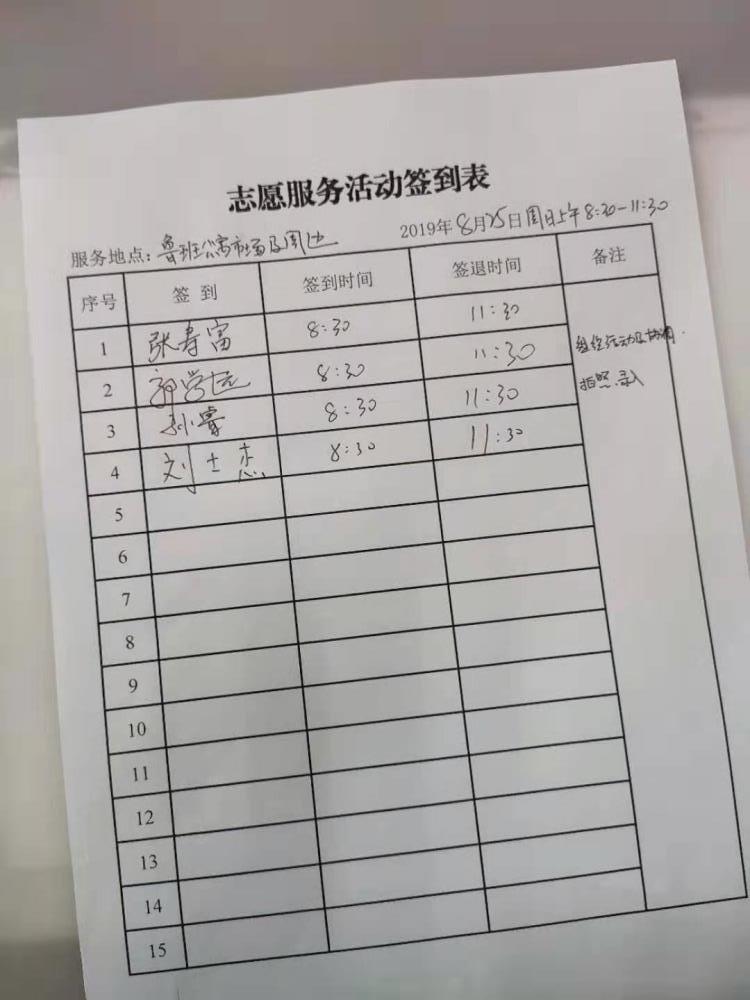 志愿服务活动签到表
服务地点：鲁班公寓市场及周边 2019年8月25日周日上午8:30-11:30
序号 签到 签到时间 签退时间 备注
1 张寿富 8:30 11:30 组织活动及协调.
2 郭学远 8:30 11:30 拍照.录入
3 孙睿 8:30 11:30
4 刘士杰 8:30 11:30
5
6
7
8
9
10
11
12
13
14
15